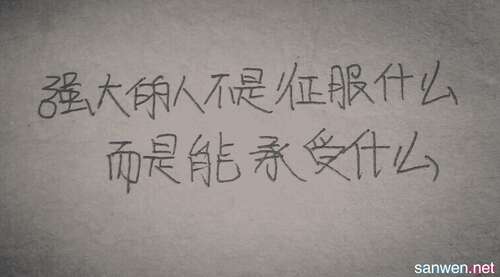 强大的人不是征服什么
而是能承受什么
sanwen.net